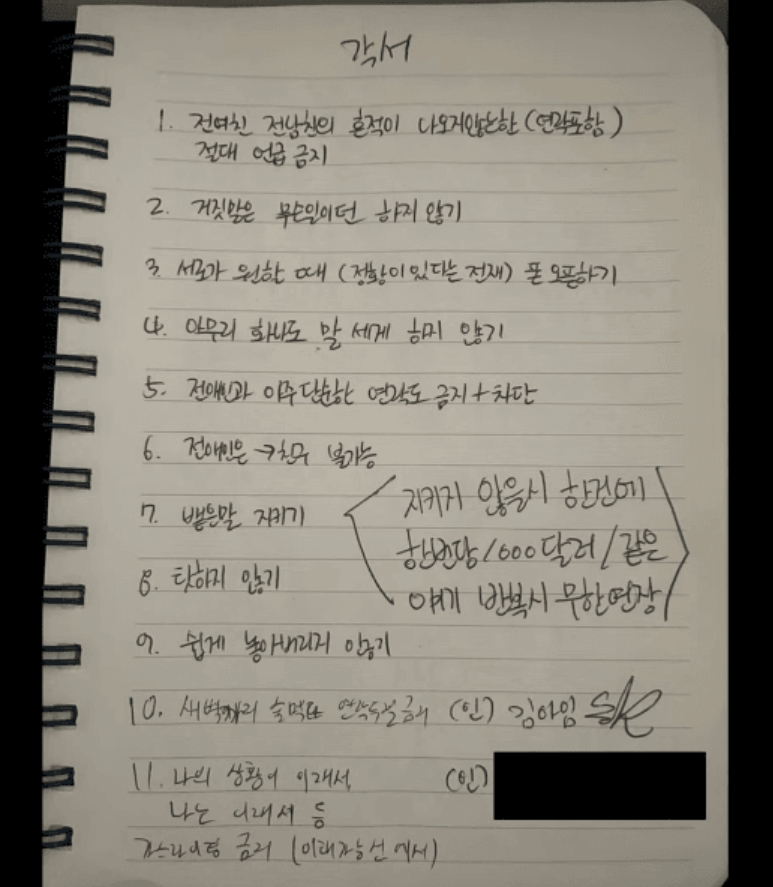 각서
1. 전여친 전남친의 흔적이 나오지않는한 (연락포함)
절대 언급 금지
2. 거짓말은 무슨일이던 하지 않기
3. 서로가 원할 때 (정황이 있다는 전재) 폰 오픈하기
4. 아무리 화나도 말 세게 하지 않기
5. 전애인과 아주 단순한 연락도 금지 + 차단
6. 전애인은 → 친구 불가능
7. 뱉은말 지키기
8. 탓하지 않기
지키지 않을시 한건에
한번당 / 600달러 / 같은
얘기 반복시 무한연장
9. 쉽게 놓아버리지 않기
10. 새벽까지 술먹고 연락두절 금지 (인) 김아임
11. 나의 상황이 이래서, (인)
나는 이래서 등
가스라이팅 금지 (이해가능선에서)